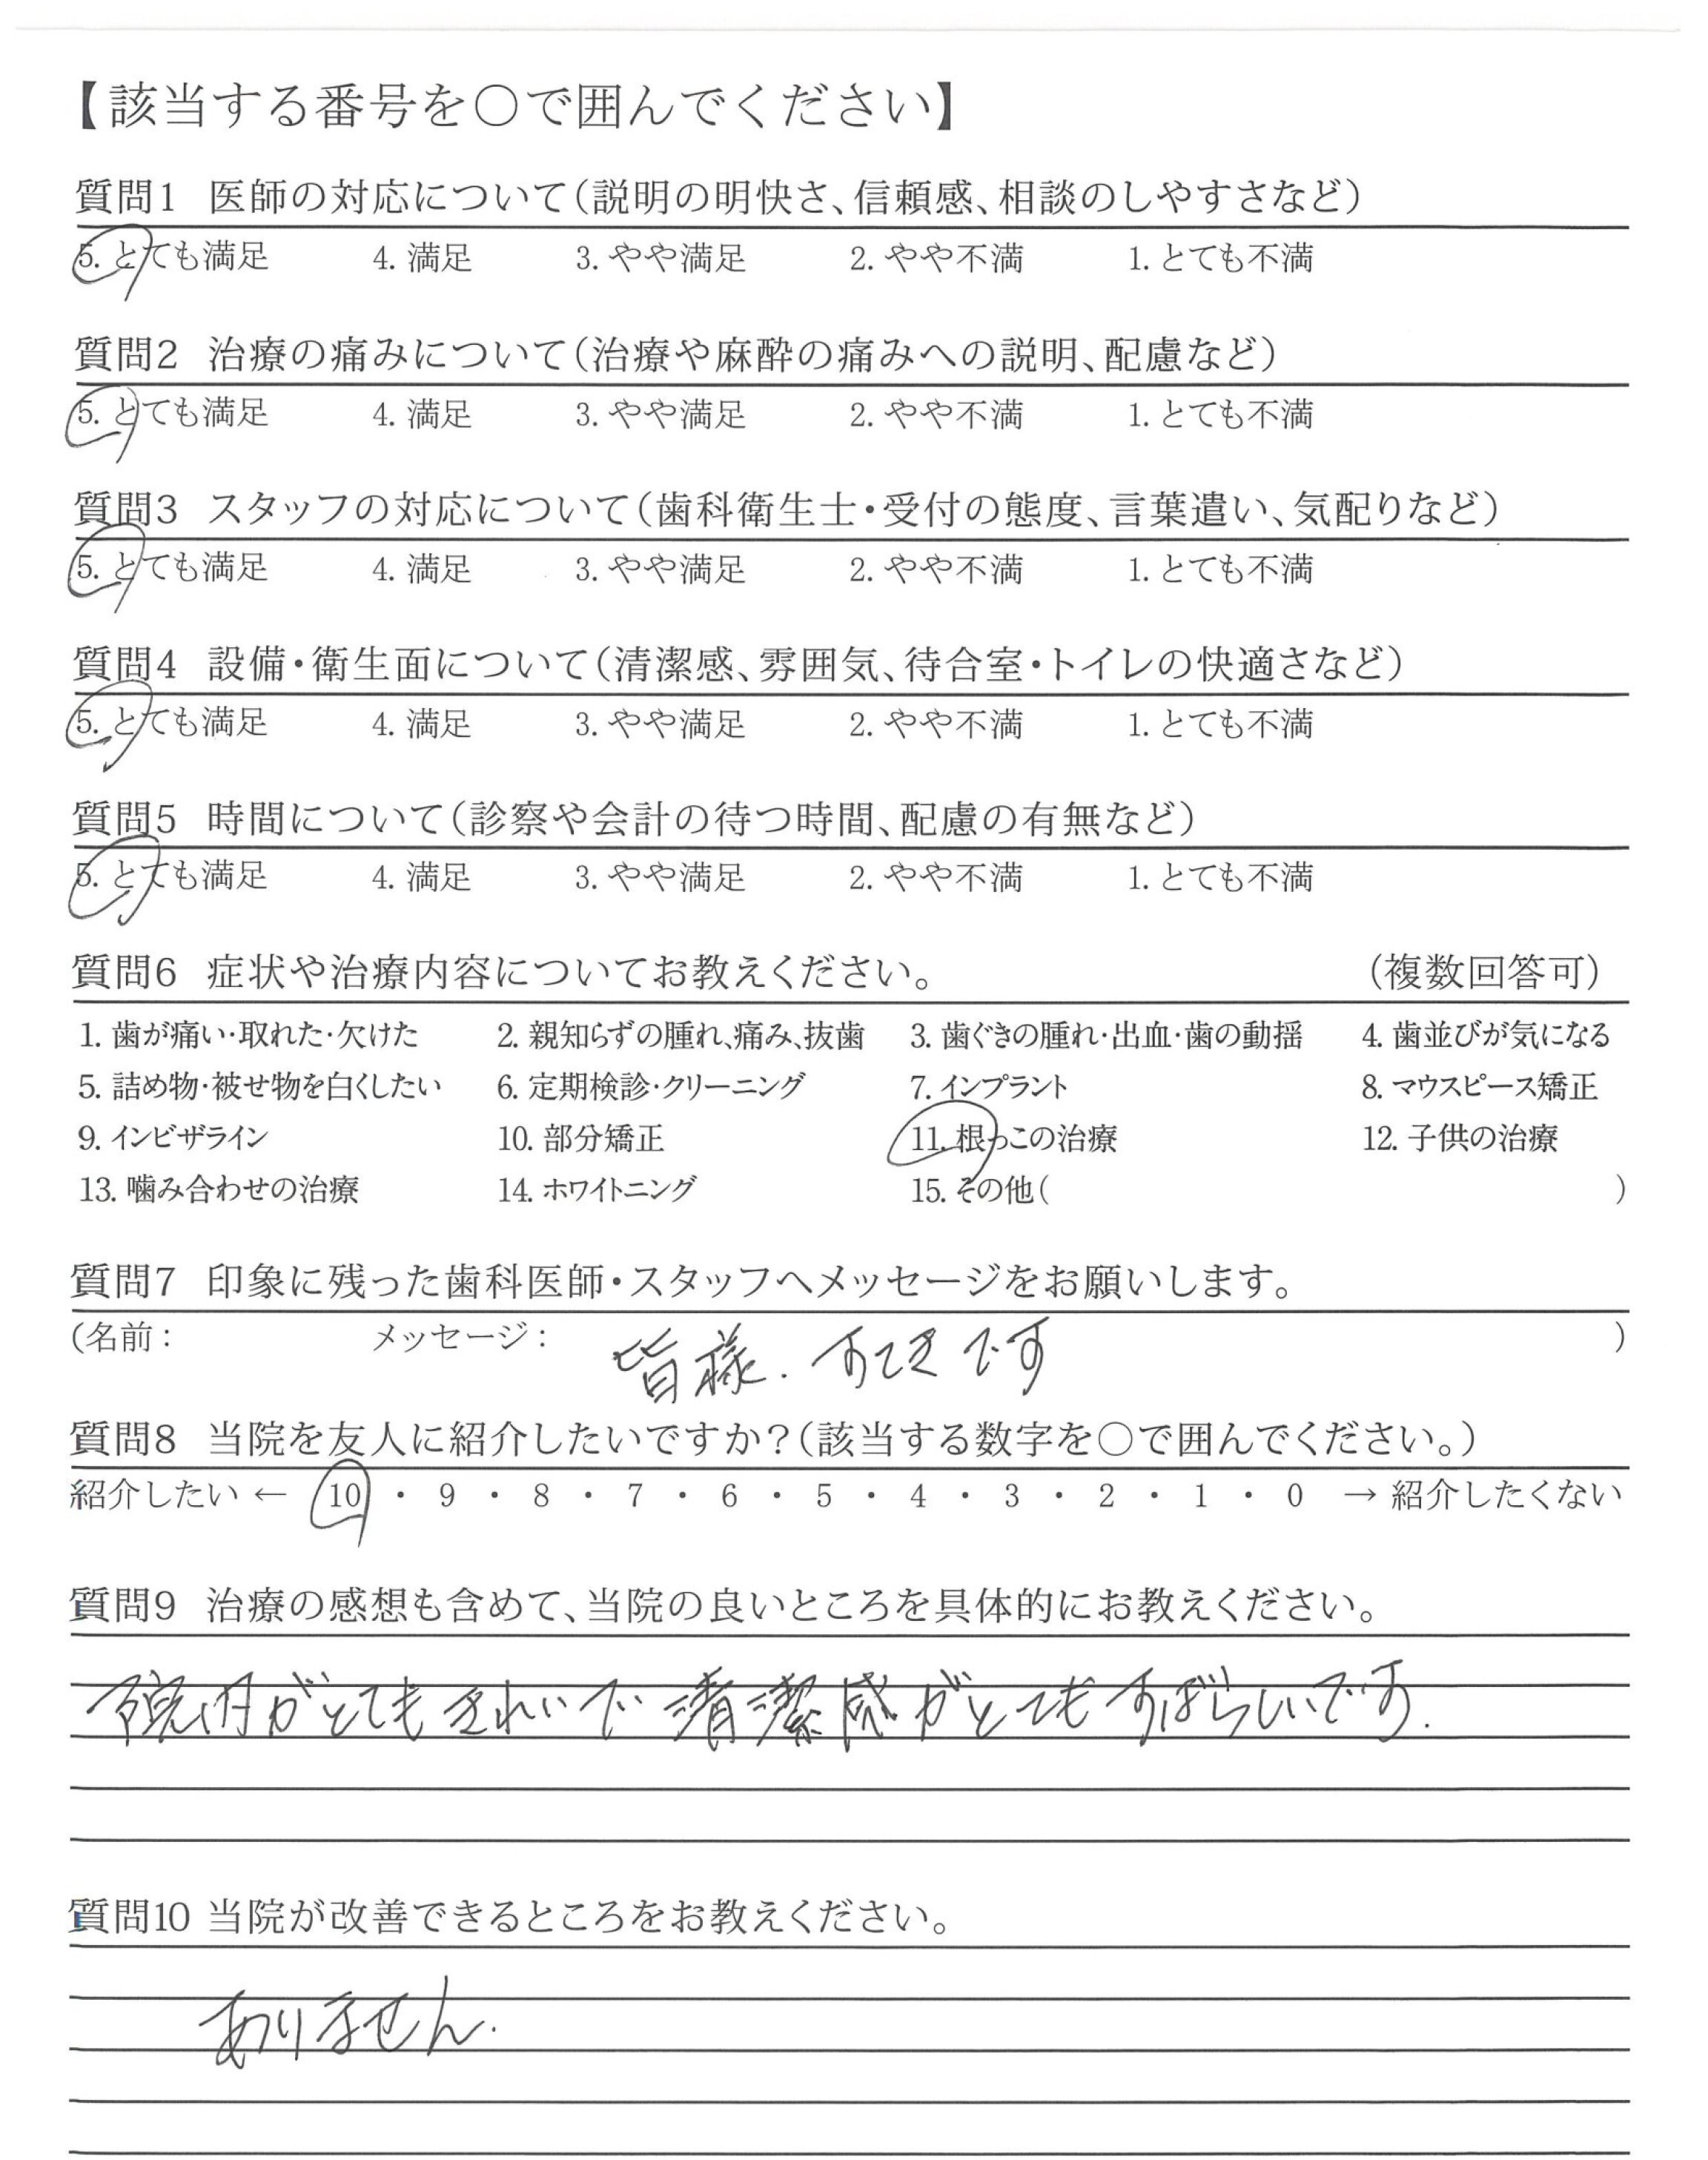 【該当する番号を○で囲んでください】
質問1 医師の対応について(説明の明快さ、信頼感、相談のしやすさなど)
5. とても満足 4. 満足 3. やや満足 2. やや不満 1. とても不満
質問2 治療の痛みについて(治療や麻酔の痛みへの説明、配慮など)
5. とても満足 4. 満足 3. やや満足 2. やや不満 1. とても不満
質問3 スタッフの対応について(歯科衛生士・受付の態度、言葉遣い、気配りなど)
5. とても満足 4. 満足 3. やや満足 2. やや不満 1. とても不満
質問4 設備・衛生面について(清潔感、雰囲気、待合室・トイレの快適さなど)
5. とても満足 4. 満足 3. やや満足 2. やや不満 1. とても不満
質問5 時間について(診察や会計の待つ時間、配慮の有無など)
5. とても満足 4. 満足 3. やや満足 2. やや不満 1. とても不満
質問6 症状や治療内容についてお教えください。 (複数回答可)
1. 歯が痛い・取れた・欠けた 2. 親知らずの腫れ、痛み、抜歯 3. 歯ぐきの腫れ・出血・歯の動揺 4. 歯並びが気になる
5. 詰め物・被せ物を白くしたい 6. 定期検診・クリーニング 7. インプラント 8. マウスピース矯正
9. インビザライン 10. 部分矯正 11. 根っこの治療 12. 子供の治療
13. 噛み合わせの治療 14. ホワイトニング 15. その他( )
質問7 印象に残った歯科医師・スタッフへメッセージをお願いします。
(名前: メッセージ: 皆様.すてきです )
質問8 当院を友人に紹介したいですか?(該当する数字を○で囲んでください。)
紹介したい ← 10 ・ 9 ・ 8 ・ 7 ・ 6 ・ 5 ・ 4 ・ 3 ・ 2 ・ 1 ・ 0 → 紹介したくない
質問9 治療の感想も含めて、当院の良いところを具体的にお教えください。
院内がとてもきれいで清潔感がとてもすばらしいです.
質問10 当院が改善できるところをお教えください。
ありません.